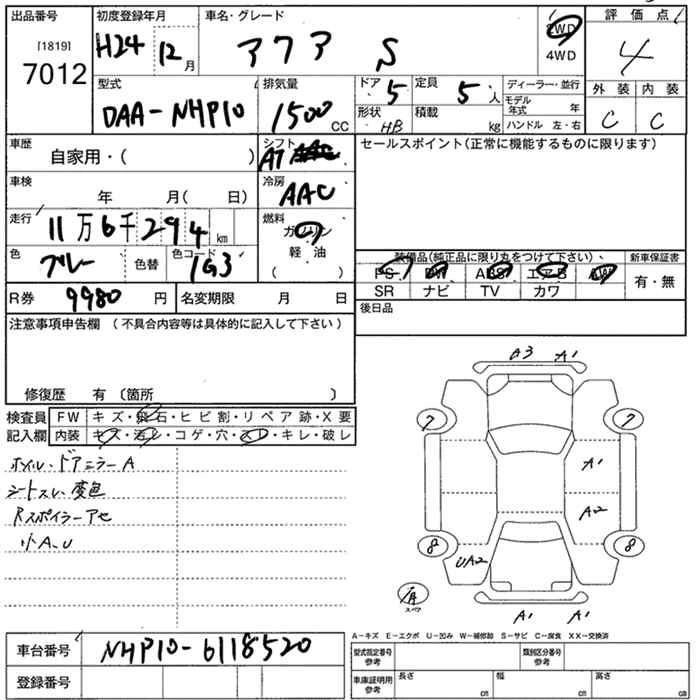 出品番号 初度登録年月 車名・グレード 評価点
[1819]
7012
H24 12月 アクア S 2WD 4WD 4
型式 排気量 ドア 5 定員 5人 ディーラー・並行 外装 内装
DAA-NHP10 1500 CC 形状 HB 積載 kg モデル年式 年 C C
ハンドル 左・右
車歴 シフト セールスポイント(正常に機能するものに限ります)
自家用・( ) AT
車検 冷房
年 月( 日) AAC
走行 燃料
11万6千294km ガソリン
色 色替 色コード 軽油
グレー 1G3 ( )
装備品(純正品に限り丸をつけて下さい) 新車保証書
PS PW ABS エアB AW 有・無
SR ナビ TV カワ
R券 9980円 名変期限 月 日 後日品
注意事項申告欄 (不具合内容等は具体的に記入して下さい)
修復歴 有 〔箇所 〕
検査員 FW キズ・飛石・ヒビ割・リペア跡・X要
記入欄 内装 キズ・汚レ・コゲ・穴・スレ・キレ・破レ
ホイル・ドアミラーA
シートスレ、変色
Rスポイラーアセ
小A、U
A3 A1
7 7
A1
A2
8 UA2 8
スペア
A1 A1
A-キズ E-エクボ U-凹み W-補修跡 S-サビ C-腐食 XX-交換済
車台番号 NHP10-6118520
登録番号
型式指定番号 参考 類別区分番号 参考
車庫証明用 参考 長さ cm 幅 cm 高さ cm